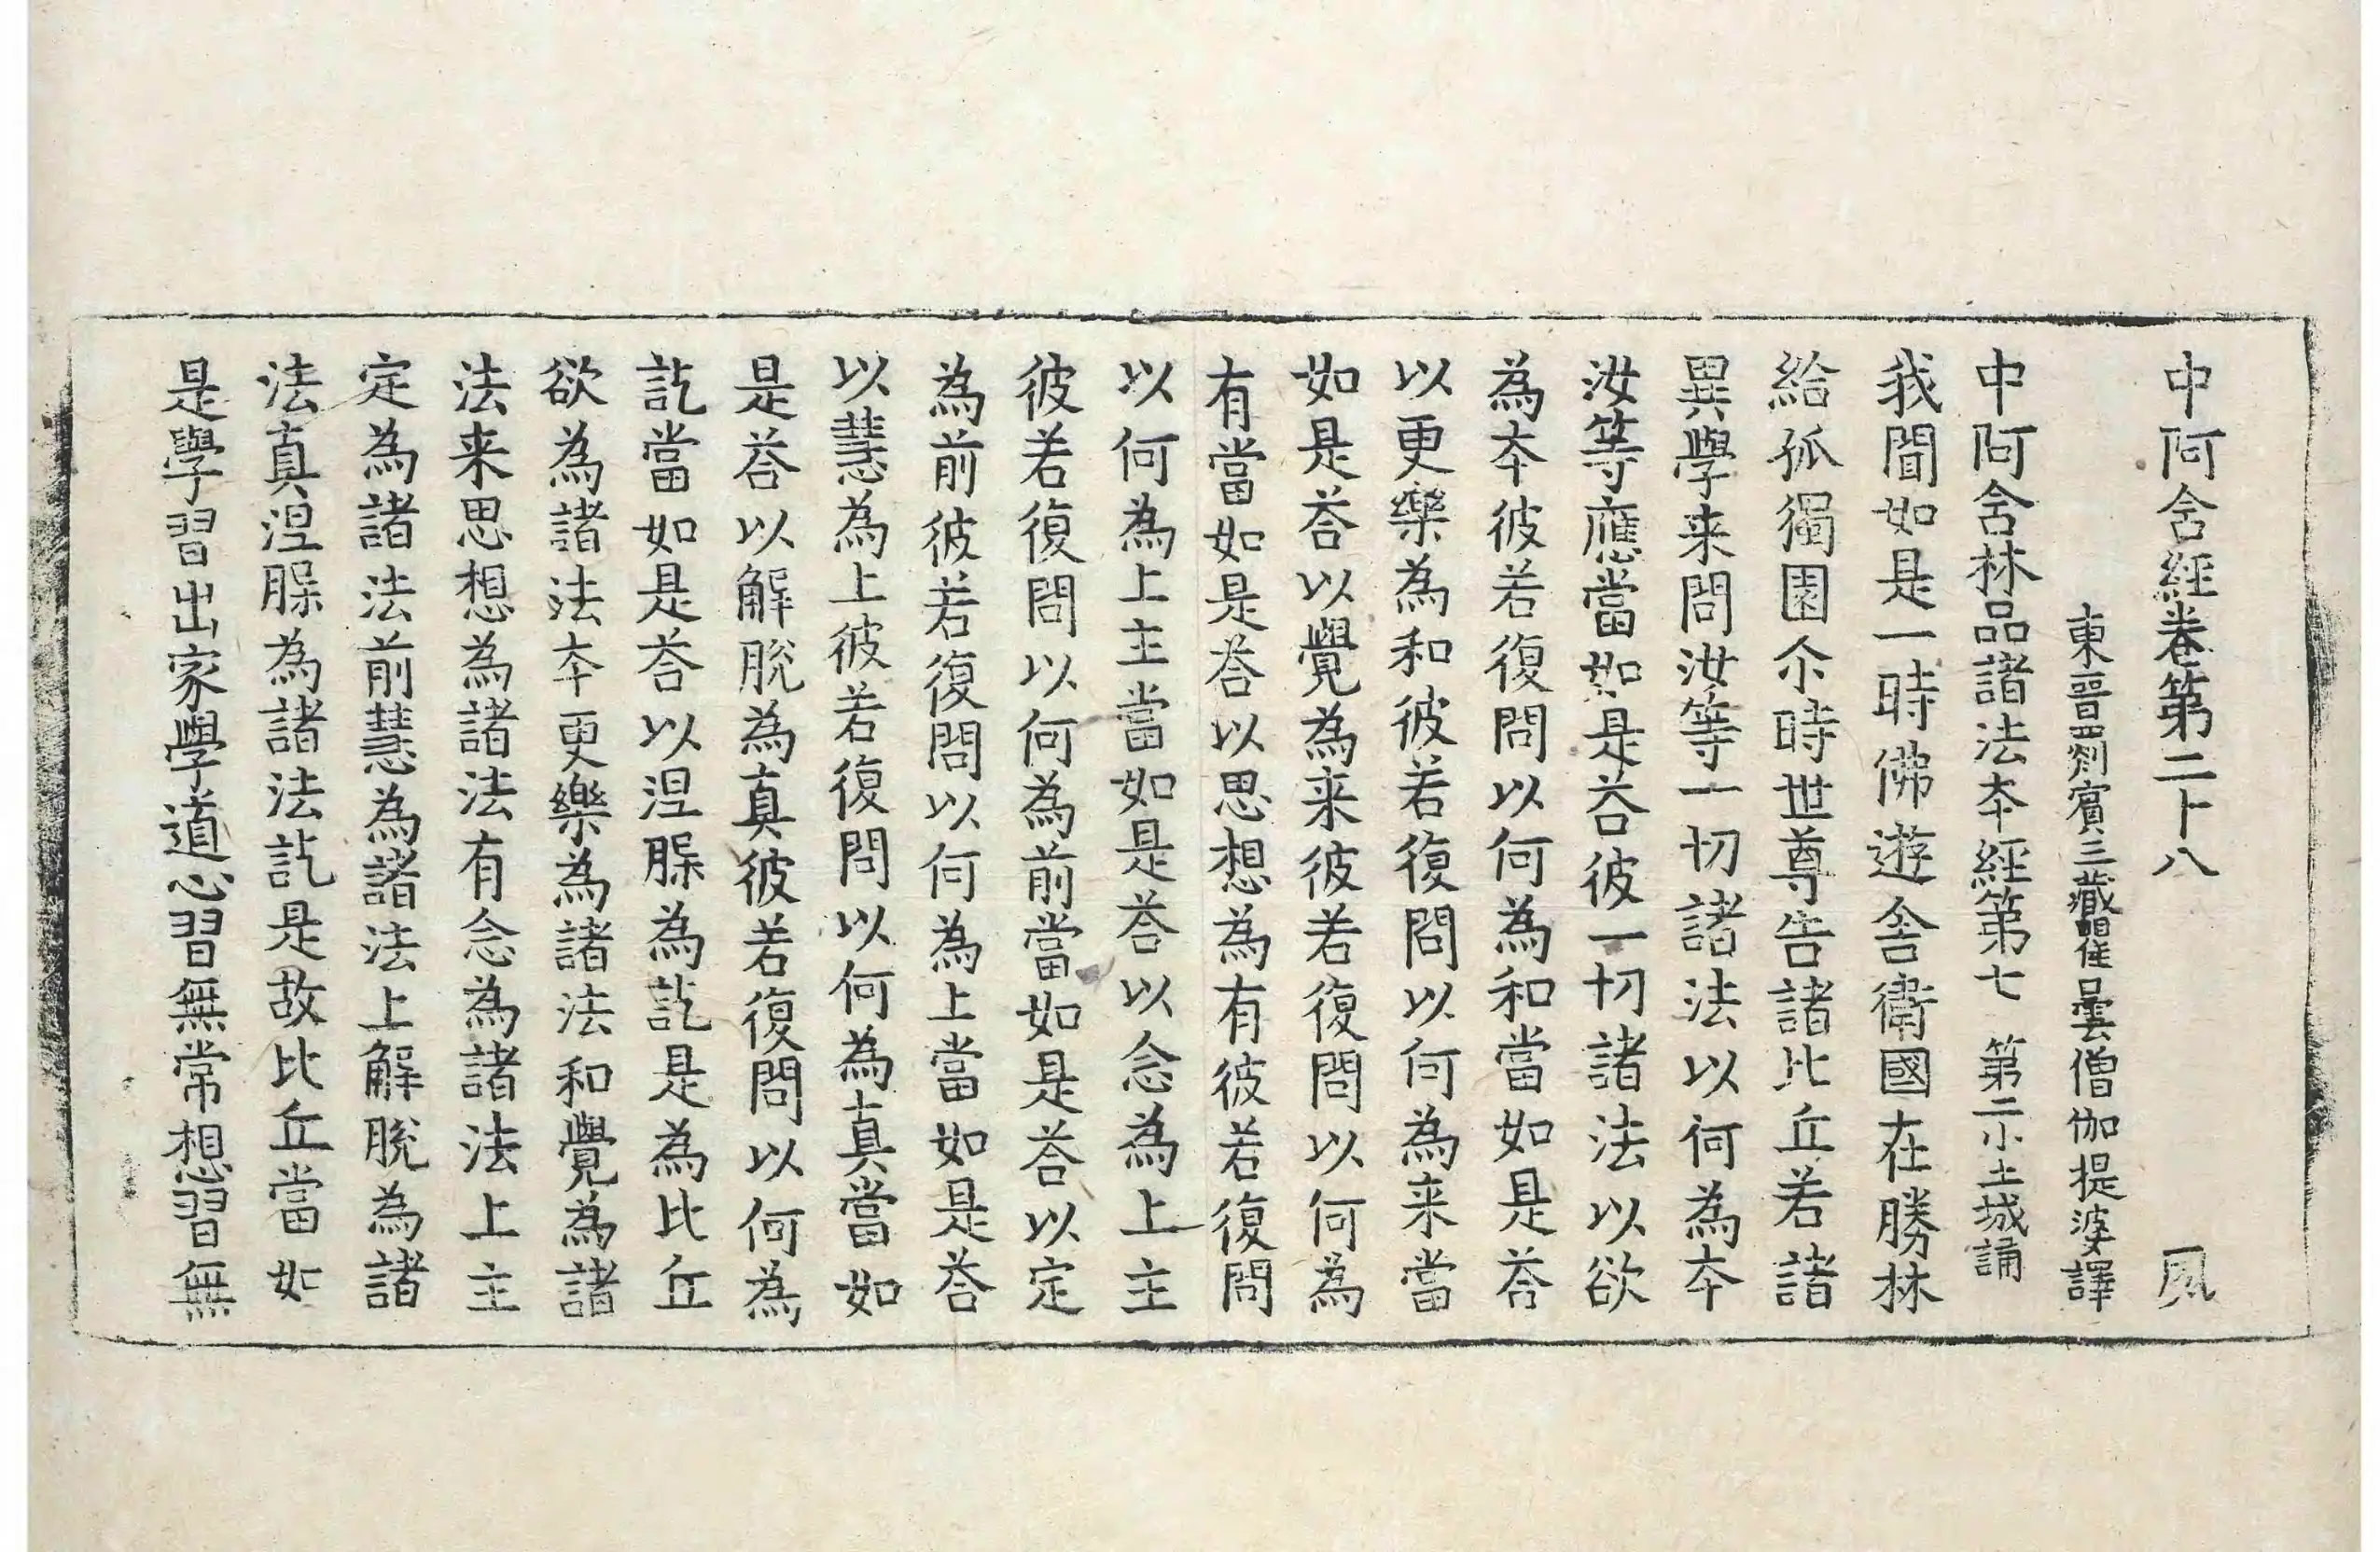 中阿含經卷第二十八 風
東晉罽賓三藏瞿曇僧伽提婆譯
中阿含林品諸法夲經第七 第二小土城誦
我聞如是一時佛遊舍衛國在勝林
給孤獨園尒時世尊告諸比丘若諸
異學来問汝等一切諸法以何為夲
汝等應當如是荅彼一切諸法以欲
為夲彼若復問以何為和當如是荅
以更樂為和彼若復問以何為来當
如是荅以覺為来彼若復問以何為
有當如是荅以思想為有彼若復問
以何為上主當如是荅以念為上主
彼若復問以何為前當如是荅以定
為前彼若復問以何為上當如是荅
以慧為上彼若復問以何為真當如
是荅以解脫為真彼若復問以何為
訖當如是荅以涅槃為訖是為比丘
欲為諸法夲更樂為諸法和覺為諸
法来思想為諸法有念為諸法上主
定為諸法前慧為諸法上解脫為諸
法真涅槃為諸法訖是故比丘當如
是學習出家學道心習無常想習無